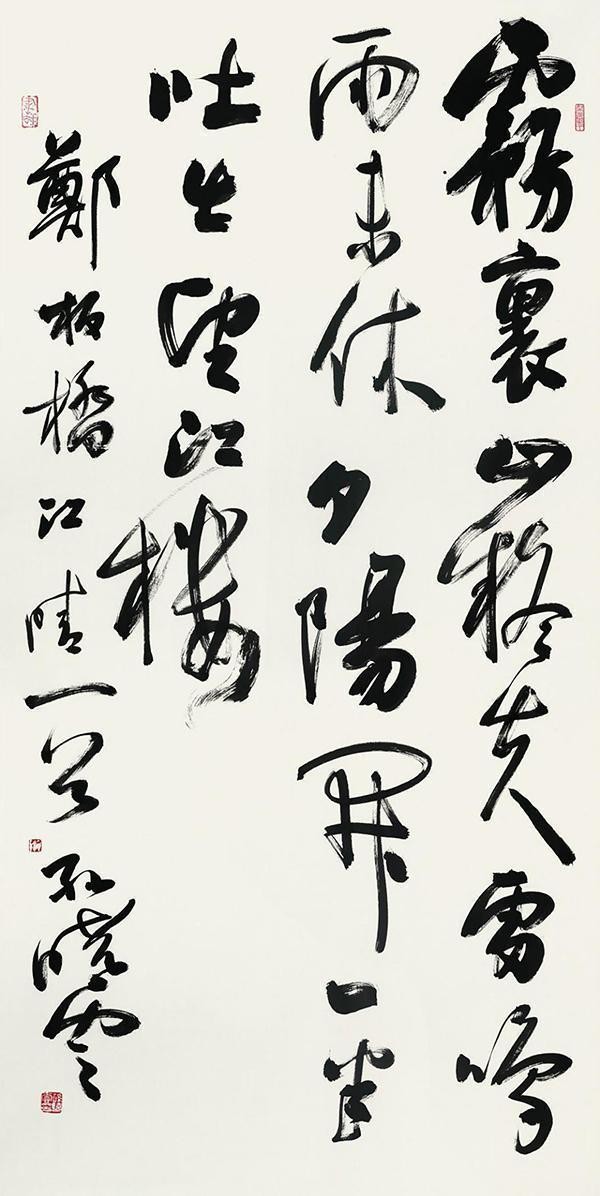 霧裏山疑失雷鳴
雨未休夕陽開一半
吐出望江樓
鄭板橋江晴一首 孫曉雲